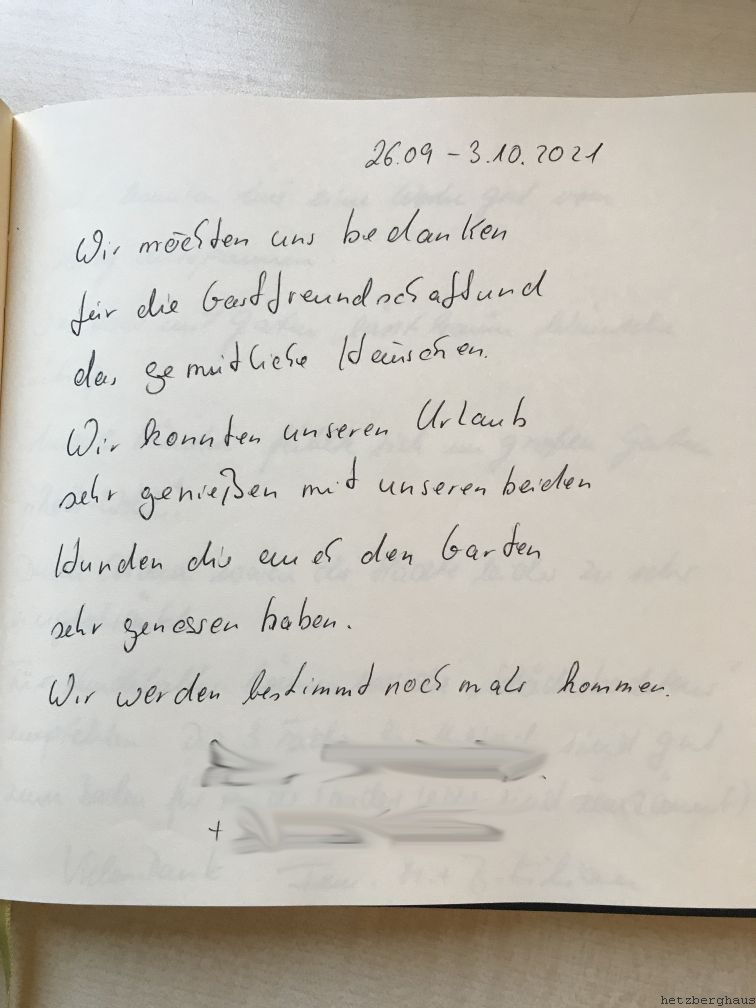 26.09 - 3.10.2021
Wir möchten uns bedanken
für die Gastfreundschaft und
das gemütliche Häuschen.
Wir konnten unseren Urlaub
sehr genießen mit unseren beiden
Hunden die auch den Garten
sehr genossen haben.
Wir werden bestimmt nochmals kommen.
+
hetzberghaus